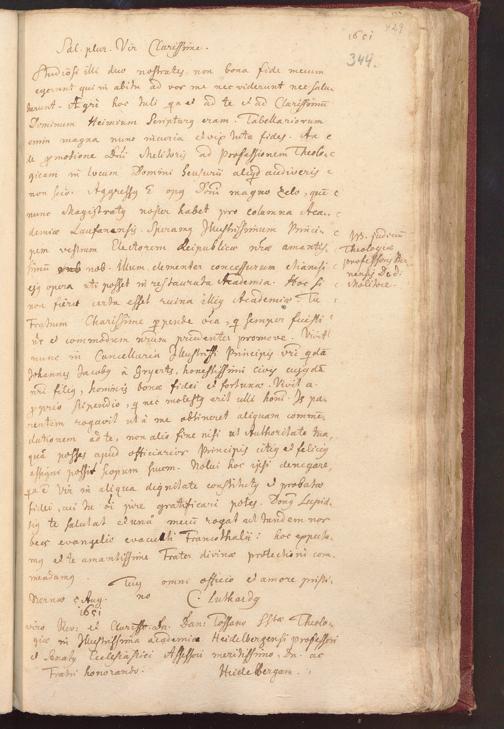 1651
429
344.
Sal. plur. Vir Clarissime.
Studiosi illi duo nostrates non bona fide mecum
egerunt qui in abitu ad vos me nec viderunt nec salu
tarunt. Aegri hoc tuli qa et ad te et ad Clarissimũ
Dominum Heimium scripturg eram. Tabellariorum
enim magna nunc incuria et vix tuta fides. An
de promotione Dni Melitoris ad Professionem Theolo
gicam in locum Domini aliqd audiveris
non scio. Aggressg e opg Dni magno zelo, quẽ
nunc Magistratg noster habet pro columna Aca
demiae Lausanensis. Speramg Illustrissimum Princi
pem vestrum Electorem Reipublicae nrae amantis
simũ nob. illum clementer concessurum
ejg opera uti posset in restauranda Academia. Hoc si
non fieret certa esset ruina illig Academiae. Tu
Fratrum Clarissime perpende oia, qd semper fecisti
et commodum nrum prudenter promove. Vivit
nunc in Cancellaria Illustrissi Principis vri qdã
Johannes Jacobg à Gryerts, honestissimi civis cujgdã
nri filig, hominis bonae fidei et fortunae. Vivit a
proprio stipendio, qd nec molestg erit ulli homĩ. Is pa
rentem rogavit ut à me obtineret aliquam commẽ
dationem ad te, non alio fine nisi ut Authoritate tua,
quâ posses apud officiarios Principis citig et felicig
assequi possit scopum suum. Nolui hoc ipsi denegare,
qa e vir in aliqua dignitate constitutg et probatae
fidei, cui tu oi jure gratificari potes. Dong Lupid
ig te salutat et una mecũ rogat ut tandem nos
bees evangelio Francothalii: hoc
mg et te amantissime Frater divinae protectioni com
mendamg.
Tug omni officio et amore prissi
Bernae 5 Aug. no C. Luthardg
1651
viro Rev: et Clarisso Dn. Dan: Tossano SStae Theolo
giae in Illustrissima academia Heidelbergensi professori
et Senatg Ecclesiastici Assessori meritissimo, Dn. ac
Fratri honorando. Heidelbergam.
NB. judiciũ
Theologiae
professoris Ber
nensis de D.
Melitore.